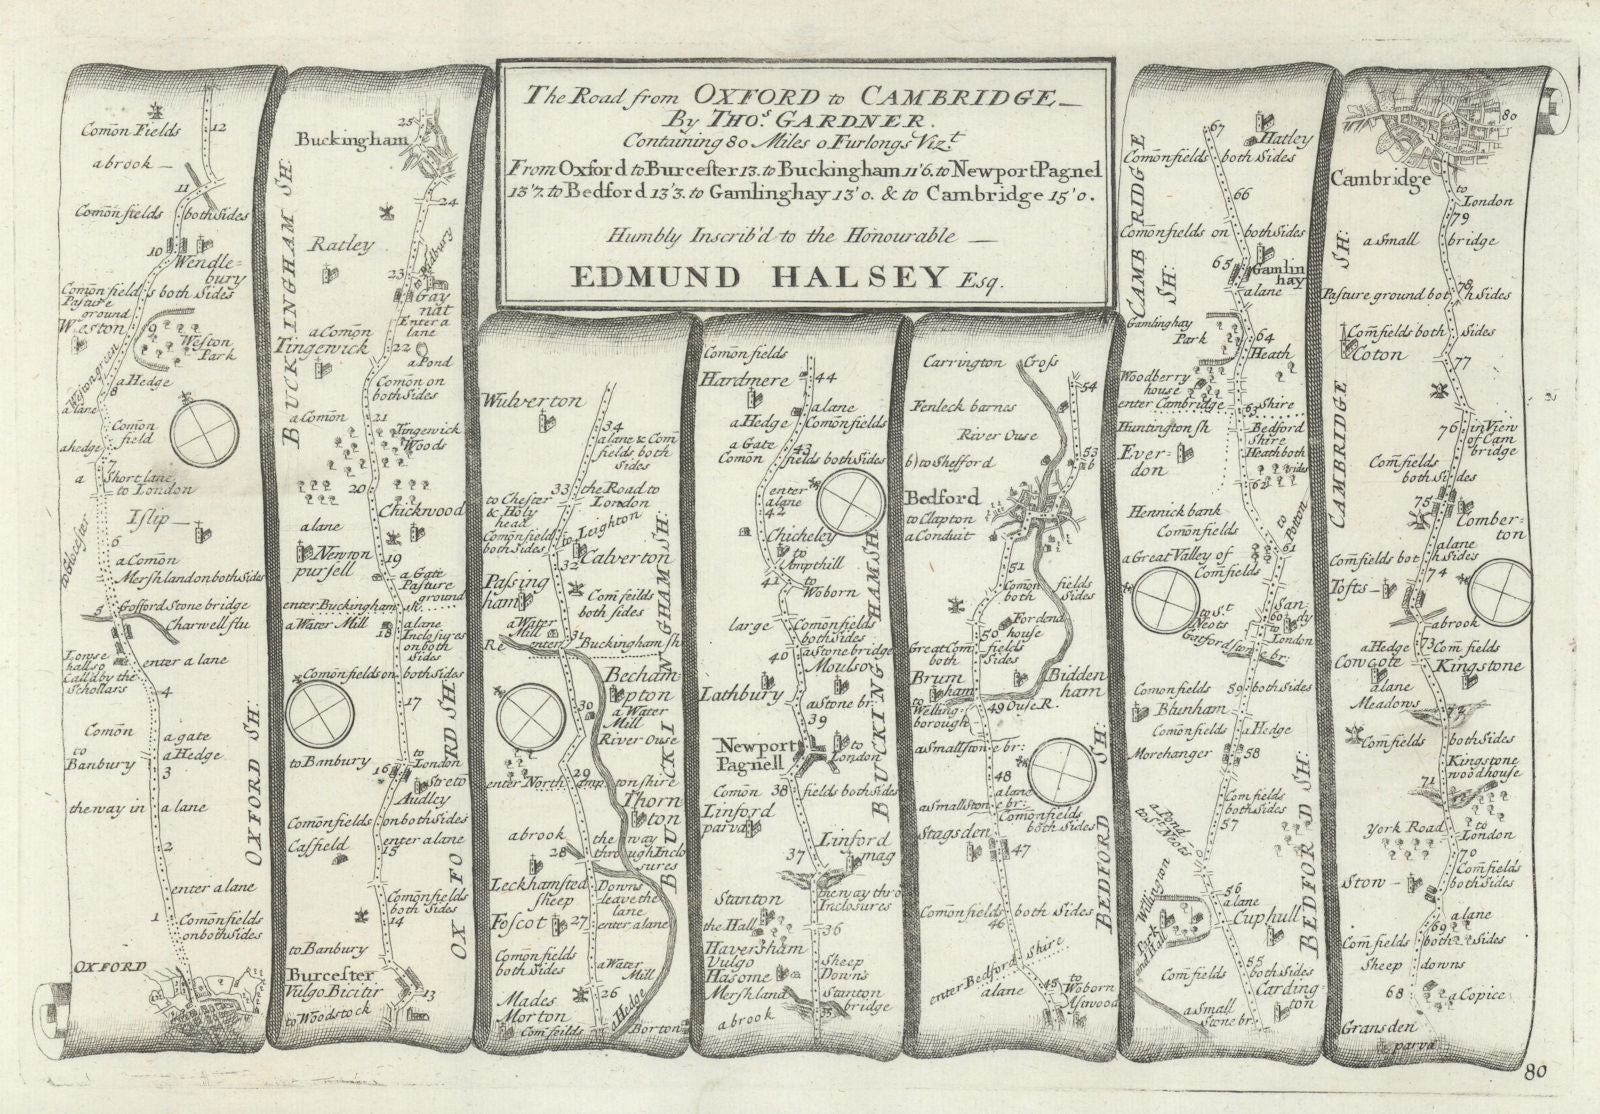 The Road from OXFORD to CAMBRIDGE,
By THO.s GARDNER.
Containing 80 Miles 0 Furlongs Viz.t
From Oxford to Burcester 13. to Buckingham 11'6. to Newport Pagnel
13'7. to Bedford 13'3. to Gamlinghay 13'0. & to Cambridge 15'0.
Humbly Inscrib'd to the Honourable
EDMUND HALSEY Esq.
12
Com̄on Fields
a brook
11
Com̄on fields both Sides
10
Wendle-
bury
Com̄on fields both Sides
Pasture
ground
Weston
9
Weston
Park
Westongreen
a Hedge
8
a lane
Com̄on
field
a hedge
7
a Short lane
to London
Islip
to Glocester
6
a Com̄on
Mersh land on both Sides
5
Gofford Stone bridge
Charwell flu
Lowse
hall so
Call'd by the
Schollars
enter a lane
4
Com̄on
a gate
to
Banbury
a Hedge
3
the way in a lane
2
enter a lane
1
Com̄on fields
on both Sides
OXFORD
OXFORD SH.
25
Buckingham
BUCKINGHAM SH.
24
Ratley
to Padbury
23
Gay
nat
Enter a
lane
a Com̄on
Tingewick
22
a Pond
Com̄on on
both Sides
a Com̄on
21
Tingewick
Woods
20
Chickwood
a lane
Newton
pursell
19
a Gate
Pasture
ground
enter Buckingham sh.
a Water Mill
18
a lane
Inclosures
on both
Sides
Com̄on fields on both Sides
17
to Banbury
to
London
16
Streto
Audley
Com̄on fields on both Sides
Casfield
enter a lane
15
Com̄on fields
both Sides
14
to Banbury
Burcester
Vulgo Bicitir
13
to Woodstock
OXFORD SH.
Wulverton
34
a lane & Com̄
fields both
Sides
33
the Road to
London
to Chester
& Holy
head
Com̄on fields
both Sides
to Leighton
Calverton
32
Passing
ham
Com̄ feilds
both sides
a Water
Mill
31
enter Buckingham sh
Becham
pton
30
a Water
Mill
River Ouse
29
enter Northamptonshire
Thorn
ton
a brook
the way
through Inclo
sures
28
Leckhamsted
Downs
leave the
lane
sheep
Foscot
27
enter a lane
Com̄on fields
both Sides
a Water
Mill
26
Mades
Morton
a Hedge
Com̄ feilds
Borton
BUCKINGHAMSH:
Com̄on fields
Hardmere
44
a Hedge
a lane
Com̄on fields
a Gate
43
Com̄on fields both Sides
enter
a lane
42
Chicheley
to
Ampthill
41
to
Woborn
large Com̄on fields
both Sides
a Stone bridge
40
Moulso
Lathbury
a Stone br.
39
Newport
Pagnell
to
London
Com̄on 38 fields both Sides
Linford
parva
Linford
mag
37
the way thro
Inclosures
Stanton
the Hall
36
Haversham
Vulgo
Hasome
Sheep
Downs
Mersh land
Stanton
bridge
a brook
35
BUCKINGHAMSH:
Carrington Cross
54
Fenleck barnes
River Ouse
53
to Shefford
Bedford
to Clapton
a Conduit
51
Com̄on fields
both Sides
Fordend
house
50
Great Com̄ fields
both Sides
Brum
ham
Bidden
ham
to
Welling
borough
49 Ouse R.
a Small stone br:
48
a lane
a Small stone br:
Com̄on fields
both Sides
Stagsden
47
Com̄on fields both Sides
46
enter Bedford Shire
a lane
45
to
Woborn
Astwood
BEDFORD SH:
67
Hatley
Com̄on fields both Sides
66
Com̄on fields on both Sides
65
Gamlin
hay
a lane
Gamlinghay
Park
64
Heath
Woodberry
house
enter Cambridge Shire
63
Huntington sh
Bedford
Shire
Heath both
sides
Ever-
don
62
Hennick bank
Com̄on fields
to
Potton
61
a Great Valley of
Com̄ fields
to S.t
Neots
San-
dy
60
to
London
Gertford stone br:
Com̄on fields
59 both Sides
Blunham
Com̄on fields
a Hedge
Morehanger
58
Com̄ fields
both Sides
57
a Pond
to S.t Neots
Willington
Park
and Hall
56
a lane
Cuphull
Com̄ fields
55
Carding-
ton
a Small
Stone br:
CAMBRIDGE
SH:
BEDFORD SH:
80
Cambridge
to
London
79
a small bridge
78
Pasture ground both Sides
Com̄ fields both Sides
Coton
77
76
in View
of Cam
bridge
Com̄ fields
both Sides
75
Comber-
ton
a lane
Com̄ fields both Sides
74
Tofts
a brook
a Hedge
73
Com̄ fields
Cowcote
Kingstone
a lane
Meadows
72
Com̄ fields both Sides
Kingstone
wood house
71
York Road
to
London
70
Com̄ fields
both Sides
Stow
a lane
69
Com̄ fields both Sides
Sheep downs
68
a Copice
Gransden
parva
CAMBRIDGE SH:
80